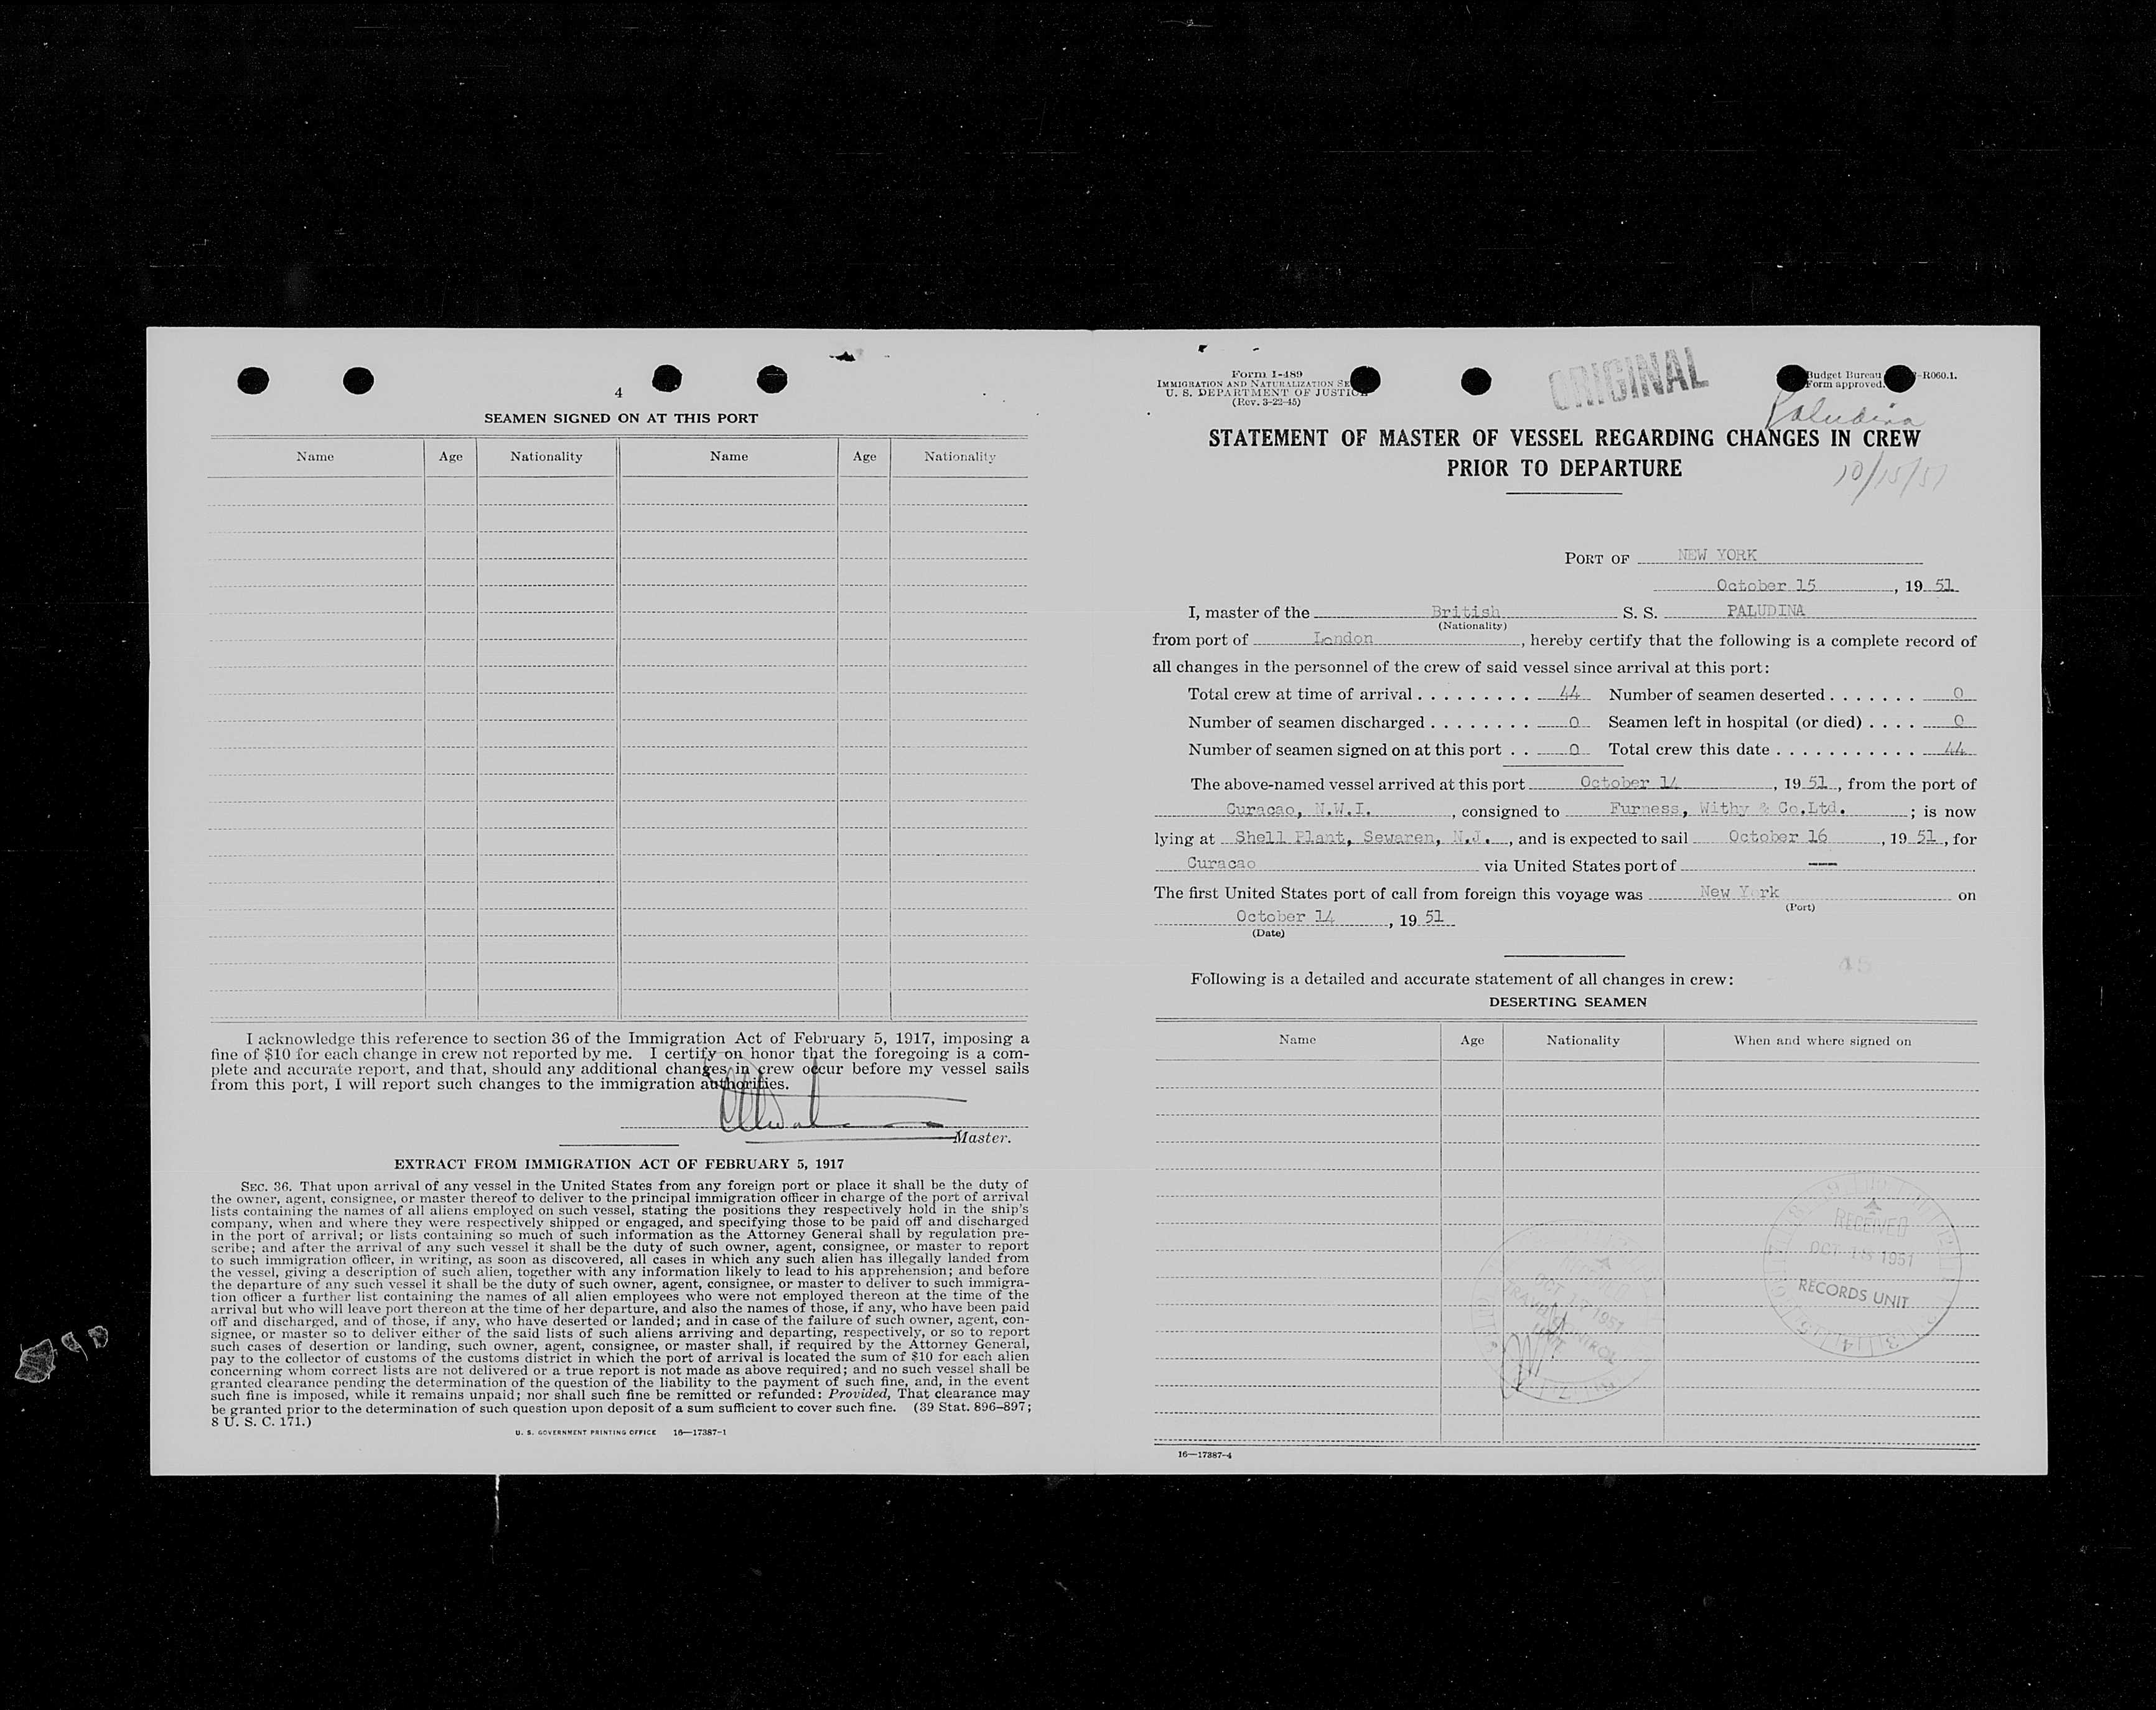 4
SEAMEN SIGNED ON AT THIS PORT
Name Age Nationality Name Age Nationality
I acknowledge this reference to section 36 of the Immigration Act of February 5, 1917, imposing a
fine of $10 for each change in crew not reported by me. I certify on honor that the foregoing is a com-
plete and accurate report, and that, should any additional changes in crew occur before my vessel sails
from this port, I will report such changes to the immigration authorities.
Master.
EXTRACT FROM IMMIGRATION ACT OF FEBRUARY 5, 1917
SEC. 36. That upon arrival of any vessel in the United States from any foreign port or place it shall be the duty of
the owner, agent, consignee, or master thereof to deliver to the principal immigration officer in charge of the port of arrival
lists containing the names of all aliens employed on such vessel, stating the positions they respectively hold in the ship's
company, when and where they were respectively shipped or engaged, and specifying those to be paid off and discharged
in the port of arrival; or lists containing so much of such information as the Attorney General shall by regulation pre-
scribe; and after the arrival of any such vessel it shall be the duty of such owner, agent, consignee, or master to report
to such immigration officer, in writing, as soon as discovered, all cases in which any such alien has illegally landed from
the vessel, giving a description of such alien, together with any information likely to lead to his apprehension; and before
the departure of any such vessel it shall be the duty of such owner, agent, consignee, or master to deliver to such immigra-
tion officer a further list containing the names of all alien employees who were not employed thereon at the time of the
arrival but who will leave port thereon at the time of her departure, and also the names of those, if any, who have been paid
off and discharged, and of those, if any, who have deserted or landed; and in case of the failure of such owner, agent, con-
signee, or master so to deliver either of the said lists of such aliens arriving and departing, respectively, or so to report
such cases of desertion or landing, such owner, agent, consignee, or master shall, if required by the Attorney General,
pay to the collector of customs of the customs district in which the port of arrival is located the sum of $10 for each alien
concerning whom correct lists are not delivered or a true report is not made as above required; and no such vessel shall be
granted clearance pending the determination of the question of the liability to the payment of such fine, and, in the event
such fine is imposed, while it remains unpaid; nor shall such fine be remitted or refunded: Provided, That clearance may
be granted prior to the determination of such question upon deposit of a sum sufficient to cover such fine. (39 Stat. 896–897;
8 U. S. C. 171.)
U. S. GOVERNMENT PRINTING OFFICE 16—17387-1
Form I-489
IMMIGRATION AND NATURALIZATION SE
U. S. DEPARTMENT OF JUSTIC
(Rev. 3-22-45)
ORIGINAL
Budget Bureau -R060.1.
Form approved.
Paludina
STATEMENT OF MASTER OF VESSEL REGARDING CHANGES IN CREW
PRIOR TO DEPARTURE
10/15/51
PORT OF NEW YORK
October 15, 19 51
I, master of the British S. S. PALUDINA
(Nationality)
from port of London, hereby certify that the following is a complete record of
all changes in the personnel of the crew of said vessel since arrival at this port:
Total crew at time of arrival . . . . . . . . . 44 Number of seamen deserted . . . . . . . 0
Number of seamen discharged . . . . . . . . 0 Seamen left in hospital (or died) . . . . 0
Number of seamen signed on at this port . . 0 Total crew this date . . . . . . . . . . . 44
The above-named vessel arrived at this port October 14, 19 51, from the port of
Curacao, N.W.I., consigned to Furness, Withy & Co.Ltd. ; is now
lying at Shell Plant, Sewaren, N.J., and is expected to sail October 16, 19 51, for
Curacao via United States port of —
The first United States port of call from foreign this voyage was New York on
(Port)
October 14, 19 51
(Date)
45
Following is a detailed and accurate statement of all changes in crew:
DESERTING SEAMEN
Name Age Nationality When and where signed on
RECEIVED
OCT 1951
RECORDS UNIT
OCT 17 1951
TRAVEL CONTROL
UNIT
16—17387-4